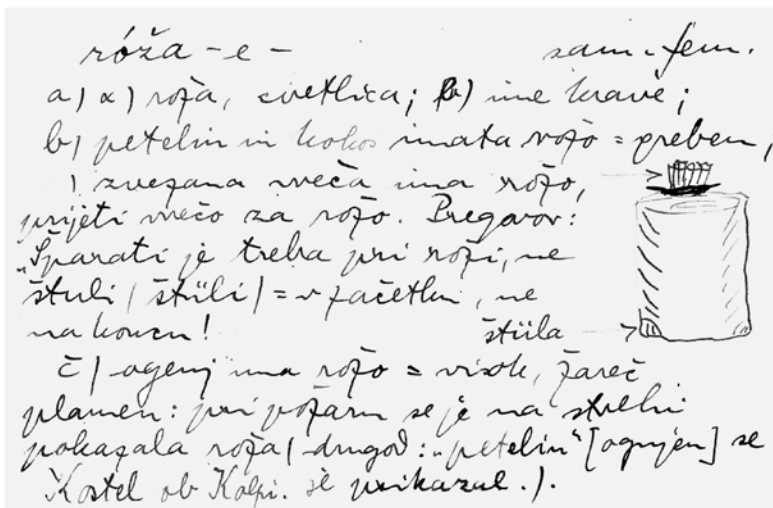 róža -e - sam. fem.
a) α) roža, cvetlica; β) ime krave;
b) petelin in kokoš imata rožo = greben,
zvezana vreča ima rožo,
prijeti vrečo za rožo. Pregovor:
„Šparati je treba pri roži, ne
štuli (štüli) = v začetku, ne
na koncu! štüla
č) ogenj ima rožo = visok, žareč
plamen: pri požaru se je na strehi
pokazala roža (drugod: „petelin“ [ognjen] se
Kostel ob Kolpi. je prikazal.).